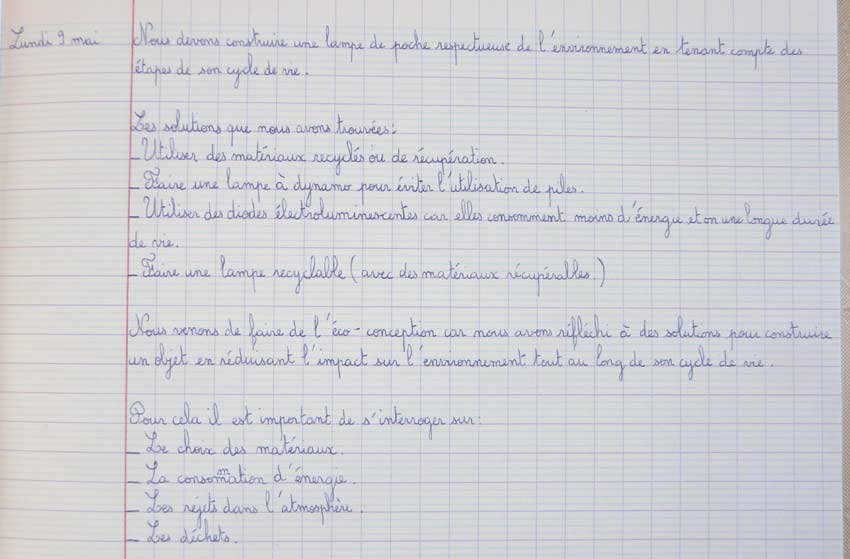 Lundi 9 mai Nous devons construire une lampe de poche respectueuse de l'environnement en tenant compte des
étapes de son cycle de vie.
Les solutions que nous avons trouvées:
_ Utiliser des matériaux recyclés ou de récupération.
_ Faire une lampe à dynamo pour éviter l'utilisation de piles.
_ Utiliser des diodes électroluminescentes car elles consomment moins d'énergie et on une longue durée
de vie.
_ Faire une lampe recyclable (avec des matériaux récupérables.)
Nous venons de faire de l'éco-conception car nous avons réfléchi à des solutions pour construire
un objet en réduisant l'impact sur l'environnement tout au long de son cycle de vie.
Pour cela il est important de s'interroger sur:
_ Le choix des matériaux.
_ La consommation d'énergie.
_ Les rejets dans l'atmosphère.
_ Les déchets.